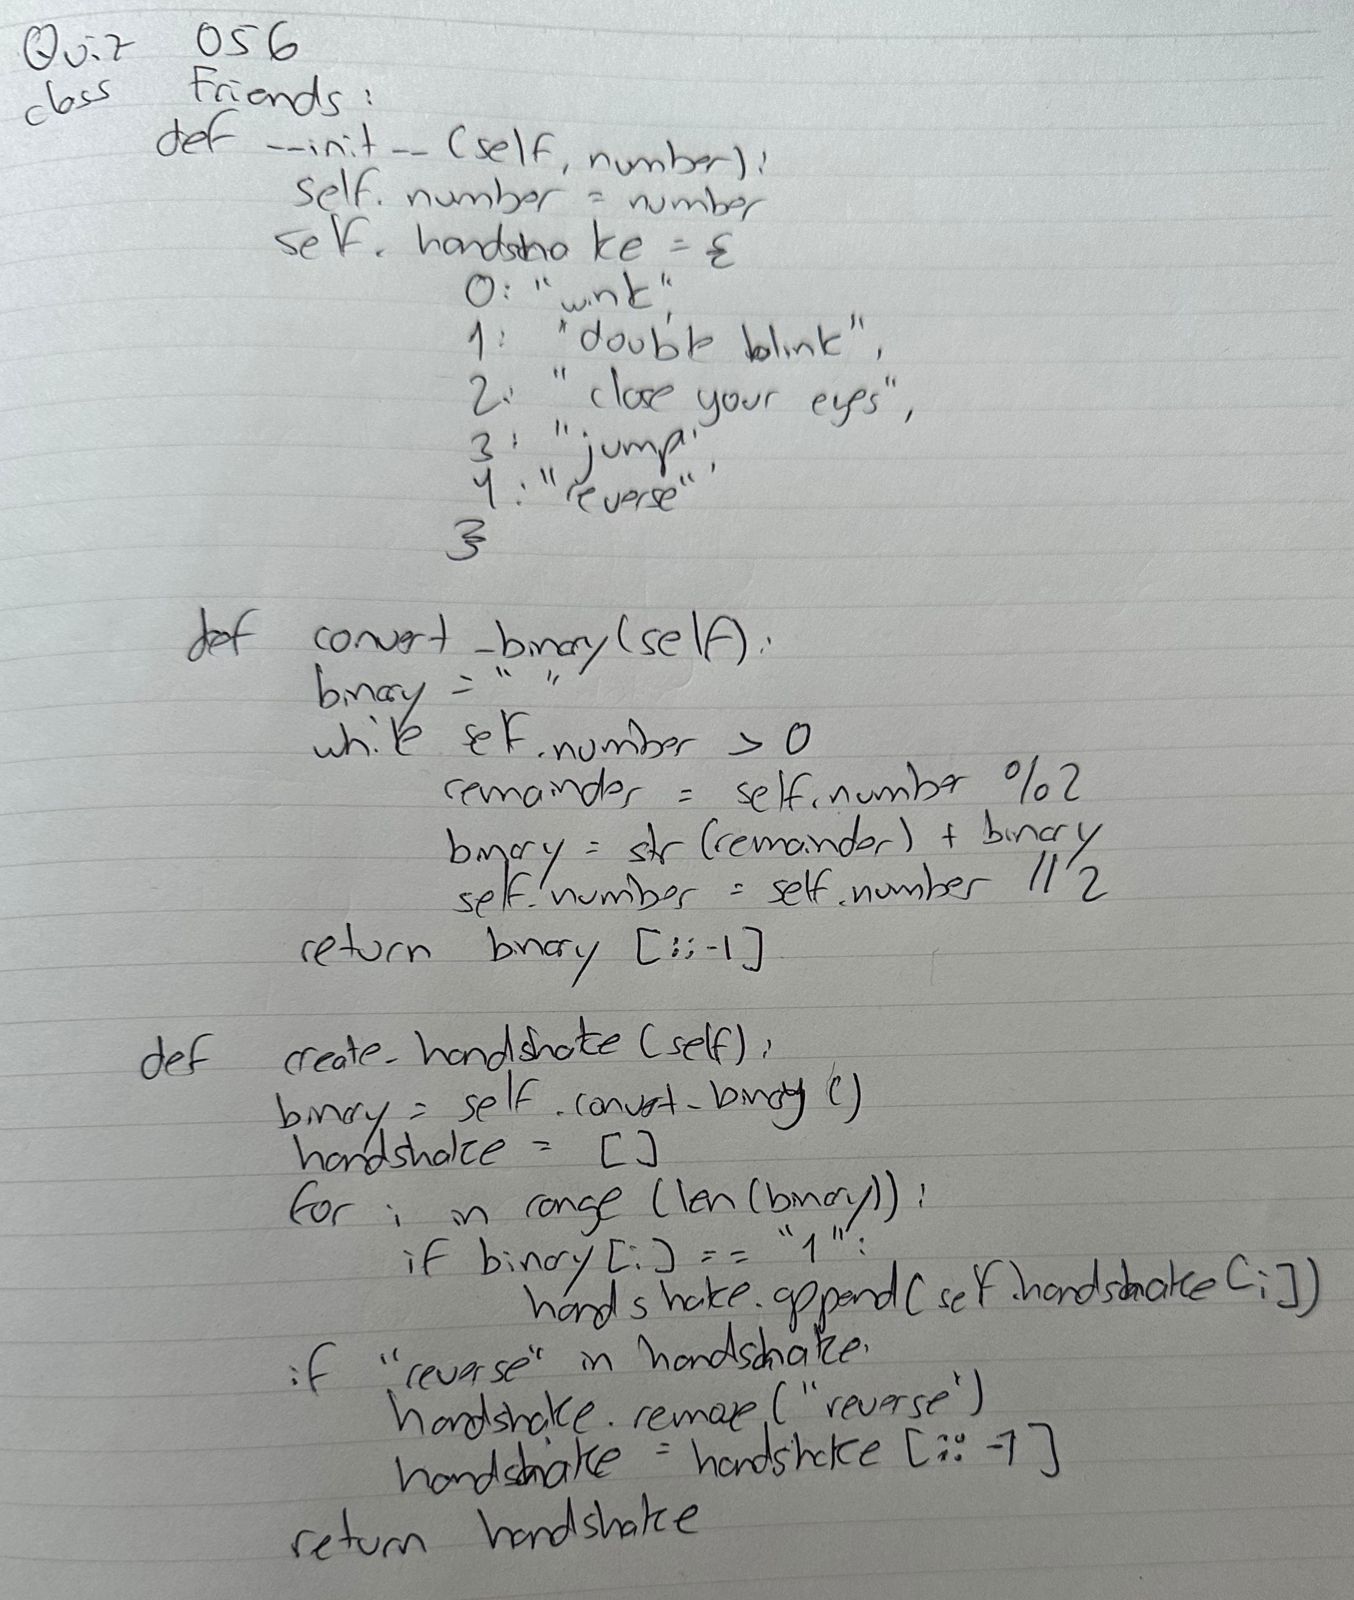 Quiz 056
class Friends:
def __init__(self, number):
self.number = number
self.handshake = {
0: "wink",
1: "double blink",
2: "close your eyes",
3: "jump",
4: "reverse"
}
def convert_binary(self):
binary = " "
while self.number > 0
remainder = self.number % 2
binary = str(remainder) + binary
self.number = self.number // 2
return binary [::-1]
def create_handshake(self):
binary = self.convert_binary()
handshake = []
for i in range (len(binary)):
if binary[i] == "1":
handshake.append(self.handshake[i])
if "reverse" in handshake:
handshake.remove("reverse")
handshake = handshake [::-1]
return handshake